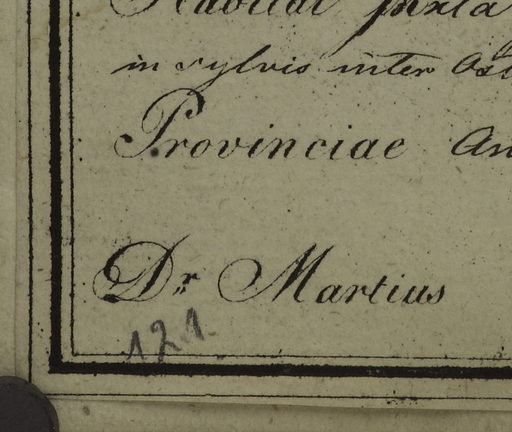 Habitat juxta
in sylvis inter
Provinciae
Dr Martius
121.